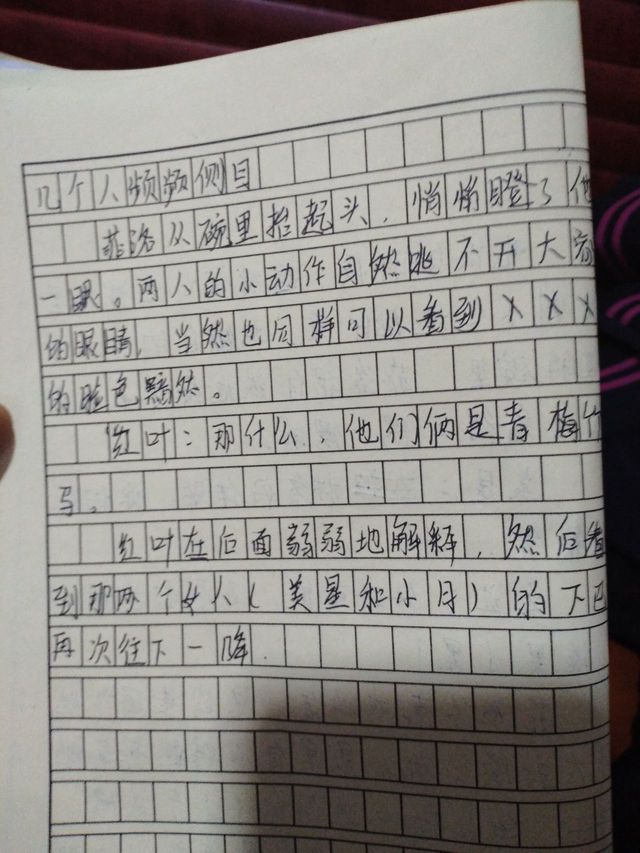 几个人频频侧目
菲洛从碗里抬起头，悄悄瞪了他
一眼。两人的小动作自然逃不开大家
的眼睛，当然也同样可以看到XXX
的脸色黯然。
红叶：那什么，他们俩是青梅竹
马。
红叶在后面弱弱地解释，然后看
到那两个女人（美星和小月）的下巴
再次往下一降.